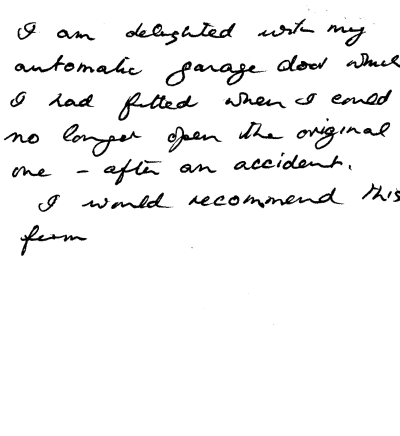 I am delighted with my
automatic garage door which
I had fitted when I could
no longer open the original
one - after an accident.
I would recommend this
firm